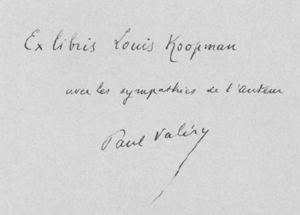 Ex libris Louis Koopman
avec les sympathies de l'auteur
Paul Valéry